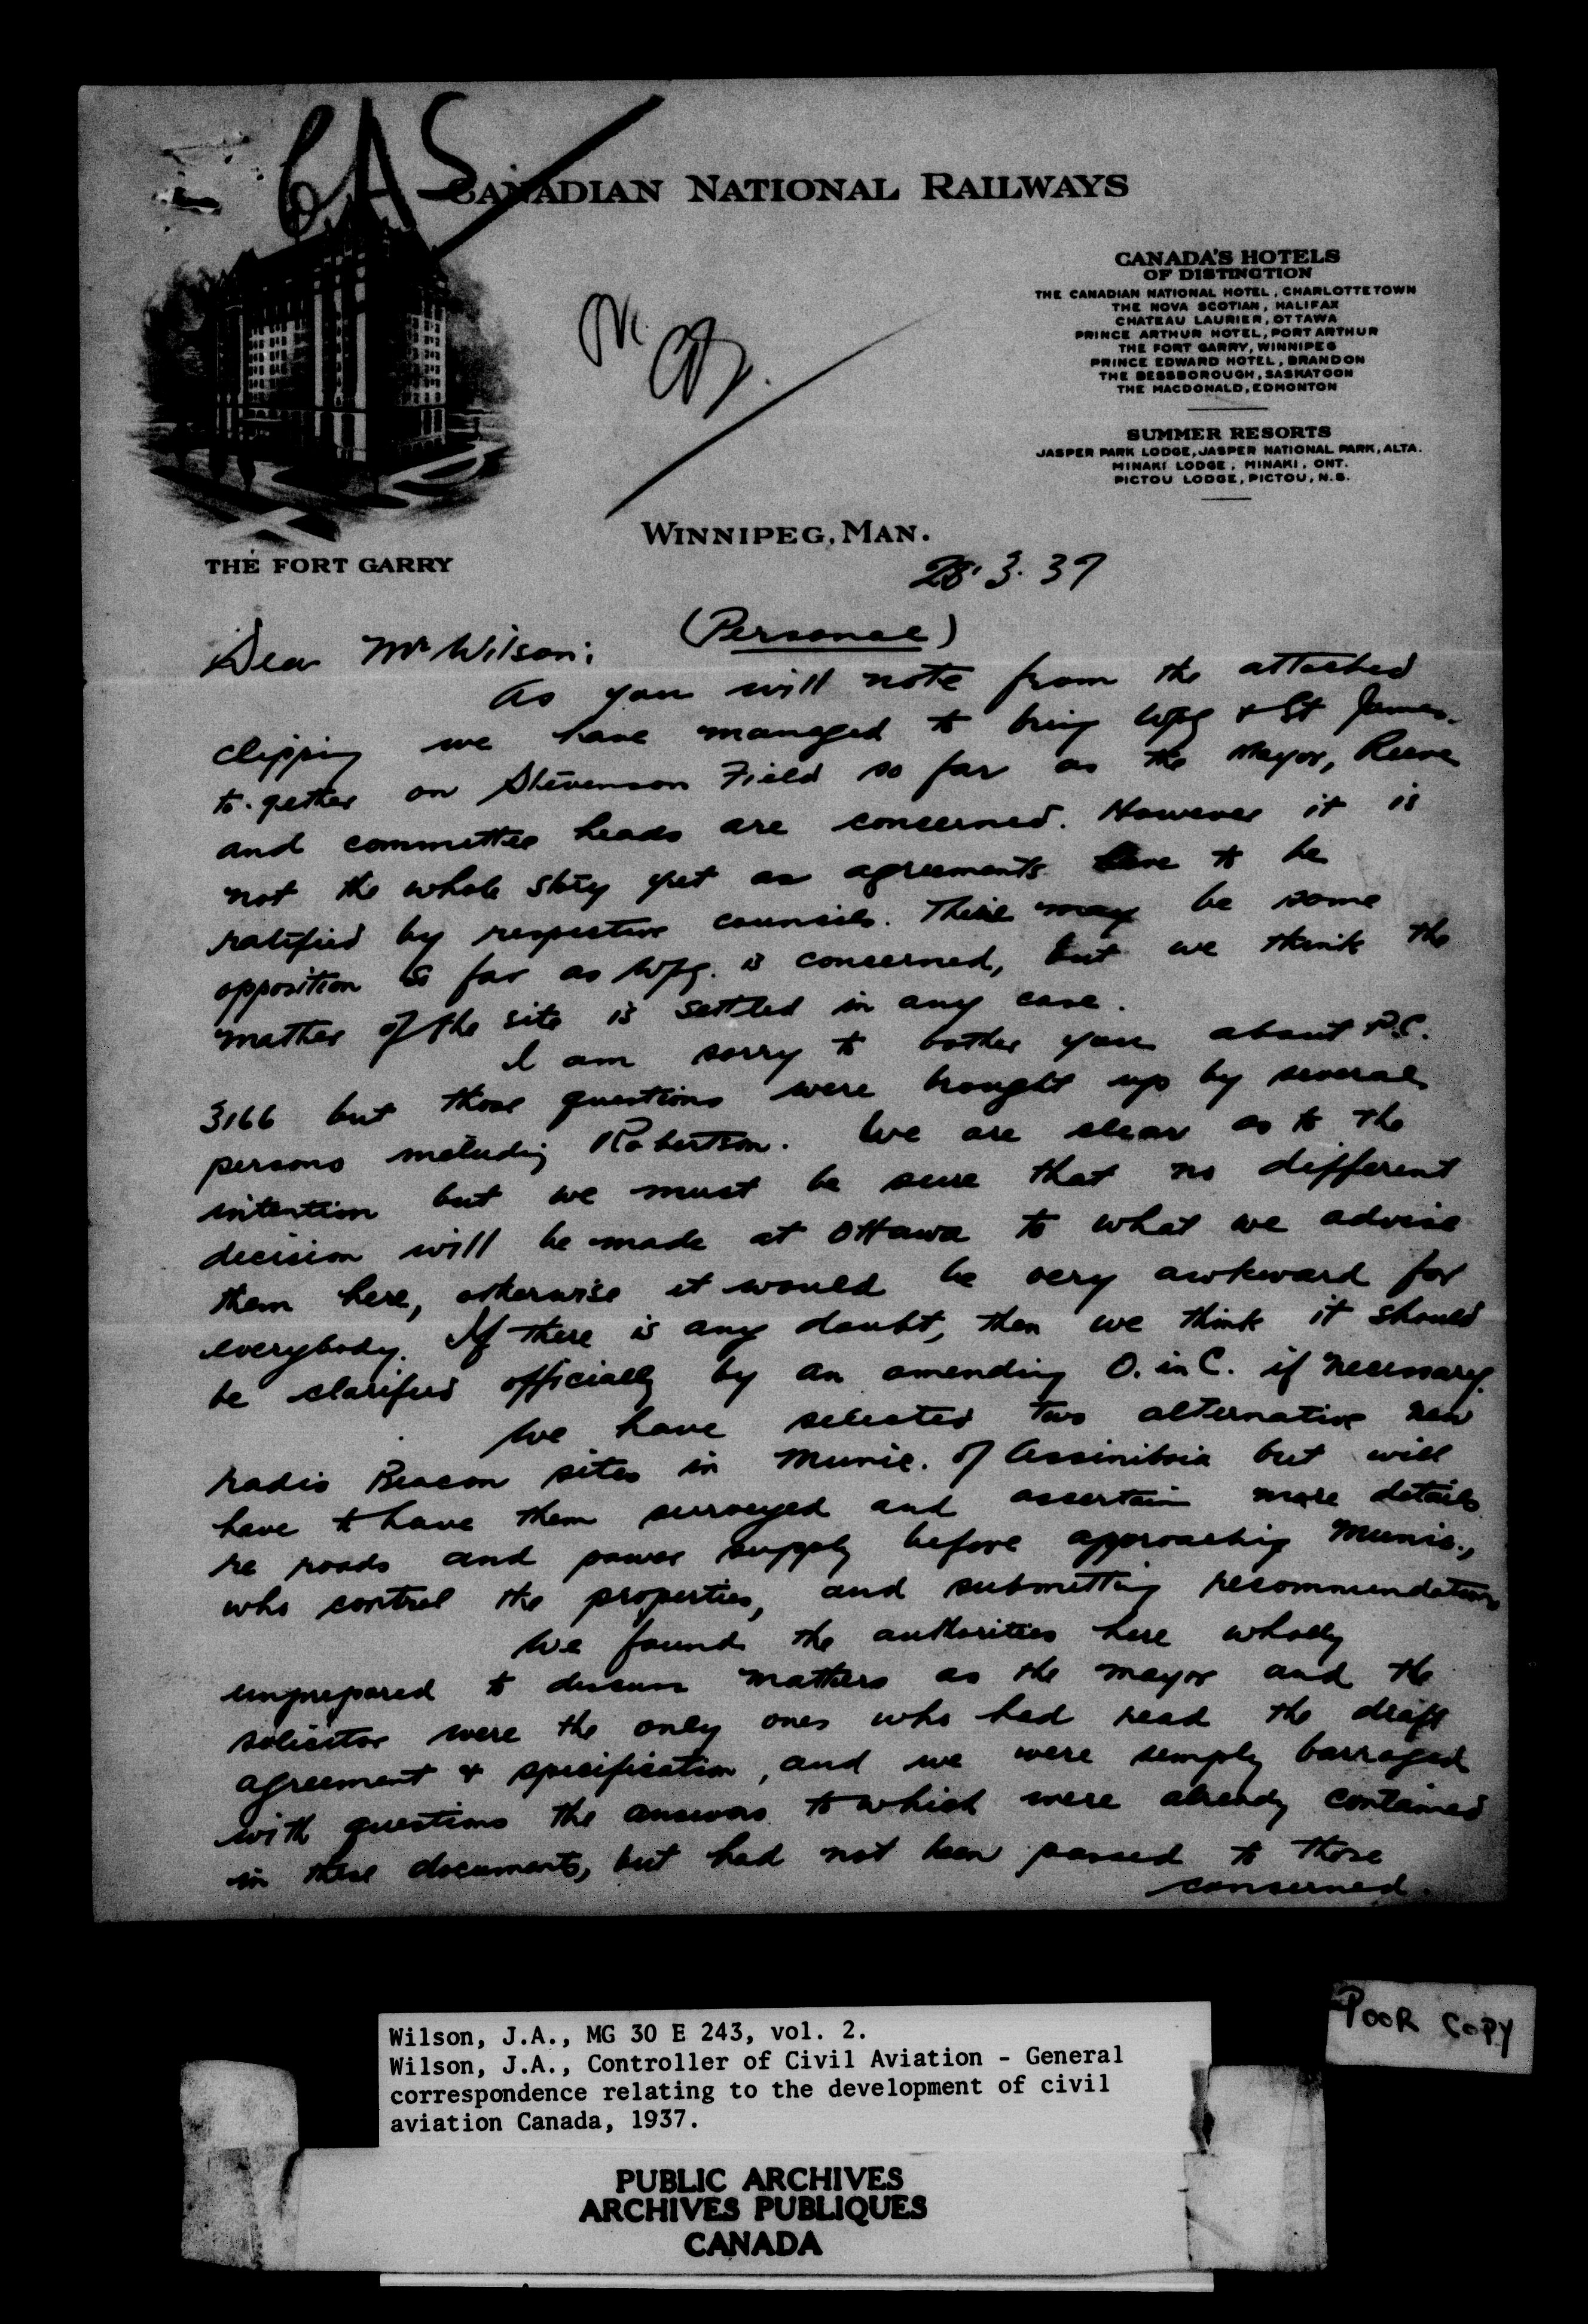 CAS
CANADIAN NATIONAL RAILWAYS
CANADA'S HOTELS
OF DISTINCTION
THE CANADIAN NATIONAL HOTEL, CHARLOTTETOWN
THE NOVA SCOTIAN, HALIFAX
CHATEAU LAURIER, OTTAWA
PRINCE ARTHUR HOTEL, PORT ARTHUR
THE FORT GARRY, WINNIPEG
PRINCE EDWARD HOTEL, BRANDON
THE BESSBOROUGH, SASKATOON
THE MACDONALD, EDMONTON
SUMMER RESORTS
JASPER PARK LODGE, JASPER NATIONAL PARK, ALTA.
MINAKI LODGE, MINAKI, ONT.
PICTOU LODGE, PICTOU, N.S.
THE FORT GARRY
WINNIPEG, MAN.
28.3.37
(Personal)
Dear Mr Wilson:
As you will note from the attached
clipping we have managed to bring Wpg & St James
to-gether on Stevenson Field so far as the Mayor, Reeve
and committee heads are concerned. However it is
not the whole story yet as agreements have to be
ratified by respective councils. There may be some
opposition so far as Wpg. is concerned, but we think the
matter of the site is settled in any case.
I am sorry to bother you about P.C.
3166 but those questions were brought up by several
persons including Robertson. We are clear as to the
intention but we must be sure that no different
decision will be made at Ottawa to what we advise
them here, otherwise it would be very awkward for
everybody. If there is any doubt, then we think it should
be clarified officially by an amending O. in C. if necessary.
We have selected two alternative new
Radio Beacon sites in Munic. of Assiniboia but will
have to have them surveyed and ascertain more details
re roads and power supply before approaching Munic.,
who control the properties, and submitting recommendations
We found the authorities here wholly
unprepared to discuss matters as the mayor and the
solicitor were the only ones who had read the draft
agreement & specification, and we were simply barraged
with questions the answers to which were already contained
in these documents, but had not been passed to those
concerned.
POOR COPY
Wilson, J.A., MG 30 E 243, vol. 2.
Wilson, J.A., Controller of Civil Aviation - General
correspondence relating to the development of civil
aviation Canada, 1937.
PUBLIC ARCHIVES
ARCHIVES PUBLIQUES
CANADA